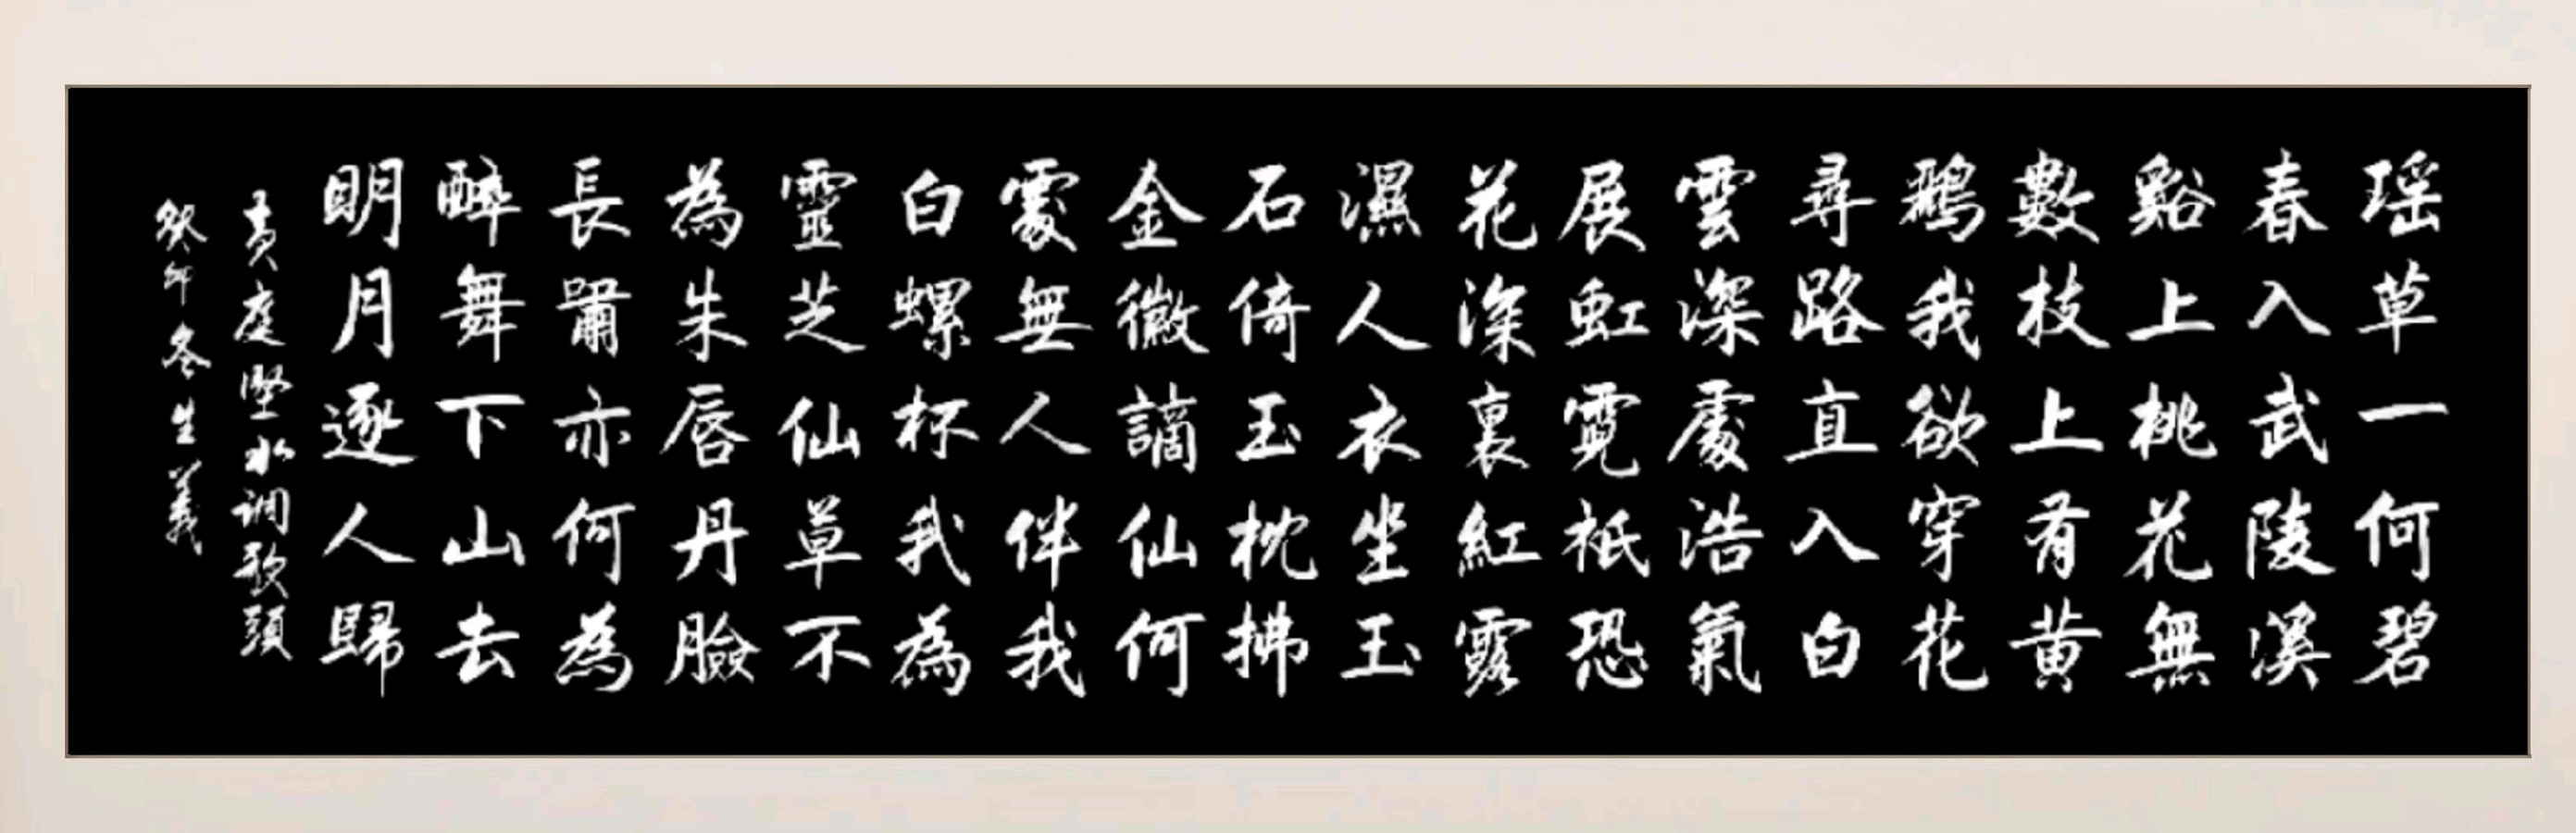 瑶草一何碧
春入武陵溪
谿上桃花無
數枝上有黄
鸝我欲穿花
尋路直入白
雲深處浩氣
展虹霓祇恐
花深裏紅露
濕人衣坐玉
石倚玉枕拂
金徽謫仙何
處無人伴我
白螺杯我為
靈芝仙草不
為朱唇丹臉
長嘯亦何為
醉舞下山去
明月逐人歸
黄庭堅水调歌頭
癸卯冬生義